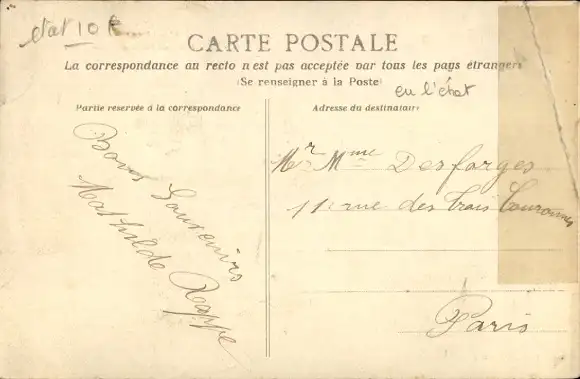 état 10 €
CARTE POSTALE
La correspondance au recto n'est pas acceptée par tous les pays étrangers
(Se renseigner à la Poste)
en l'état
Partie réservée à la correspondance
Adresse du destinataire
Bons Souvenirs
Mathilde Rappe
Mr Mme Desfarges
11 rue des Trois Couronnes
Paris